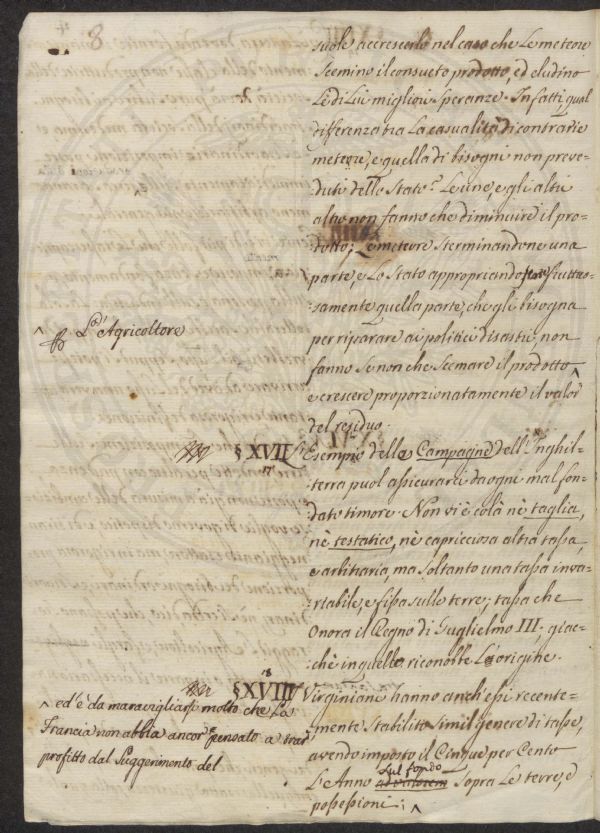 8
suole accrescerlo nel caso che le meteore
scemino il consueto prodotto, ed eludino
le di lui migliori speranze. Infatti, qual
differenza tra la casualità di contrarie
meteore, e quella di bisogni non preve=
duti dello Stato? Le une, e gli altri
altro non fanno che diminuire il pro=
dotto; le meteore sterminandone una
parte, e lo Stato appropriando fruttuo=
samente quella parte, che gli bisogna
per riparare ai politici disastri, non
fanno se non che scemare il prodotto
e crescere proporzionatamente il valor
del residuo.
Agricoltore
§ XVII L'Esempio delle Campagne dell'Inghil=
17
terra puol assicurarci da ogni mal fon=
dato timore. Non vi è colà nè taglia,
nè testatico, nè capricciosa altra tassa,
e arbitraria, ma soltanto una tassa inva=
riabile, e fissa sulle terre; tassa che
onora il Regno di Guglielmo III, giac=
chè in quello riconobbe l'origine.
18
§ XVIII I Virginiani hanno anch'essi recente=
mente stabilito simil genere di tasse,
avendo imposto il Cinque per Cento
l'Anno sul fondo sopra le terre, e
possessioni;
ed è da maravigliarsi molto che la
Francia non abbia ancor pensato a trar
profitto dal suggerimento del